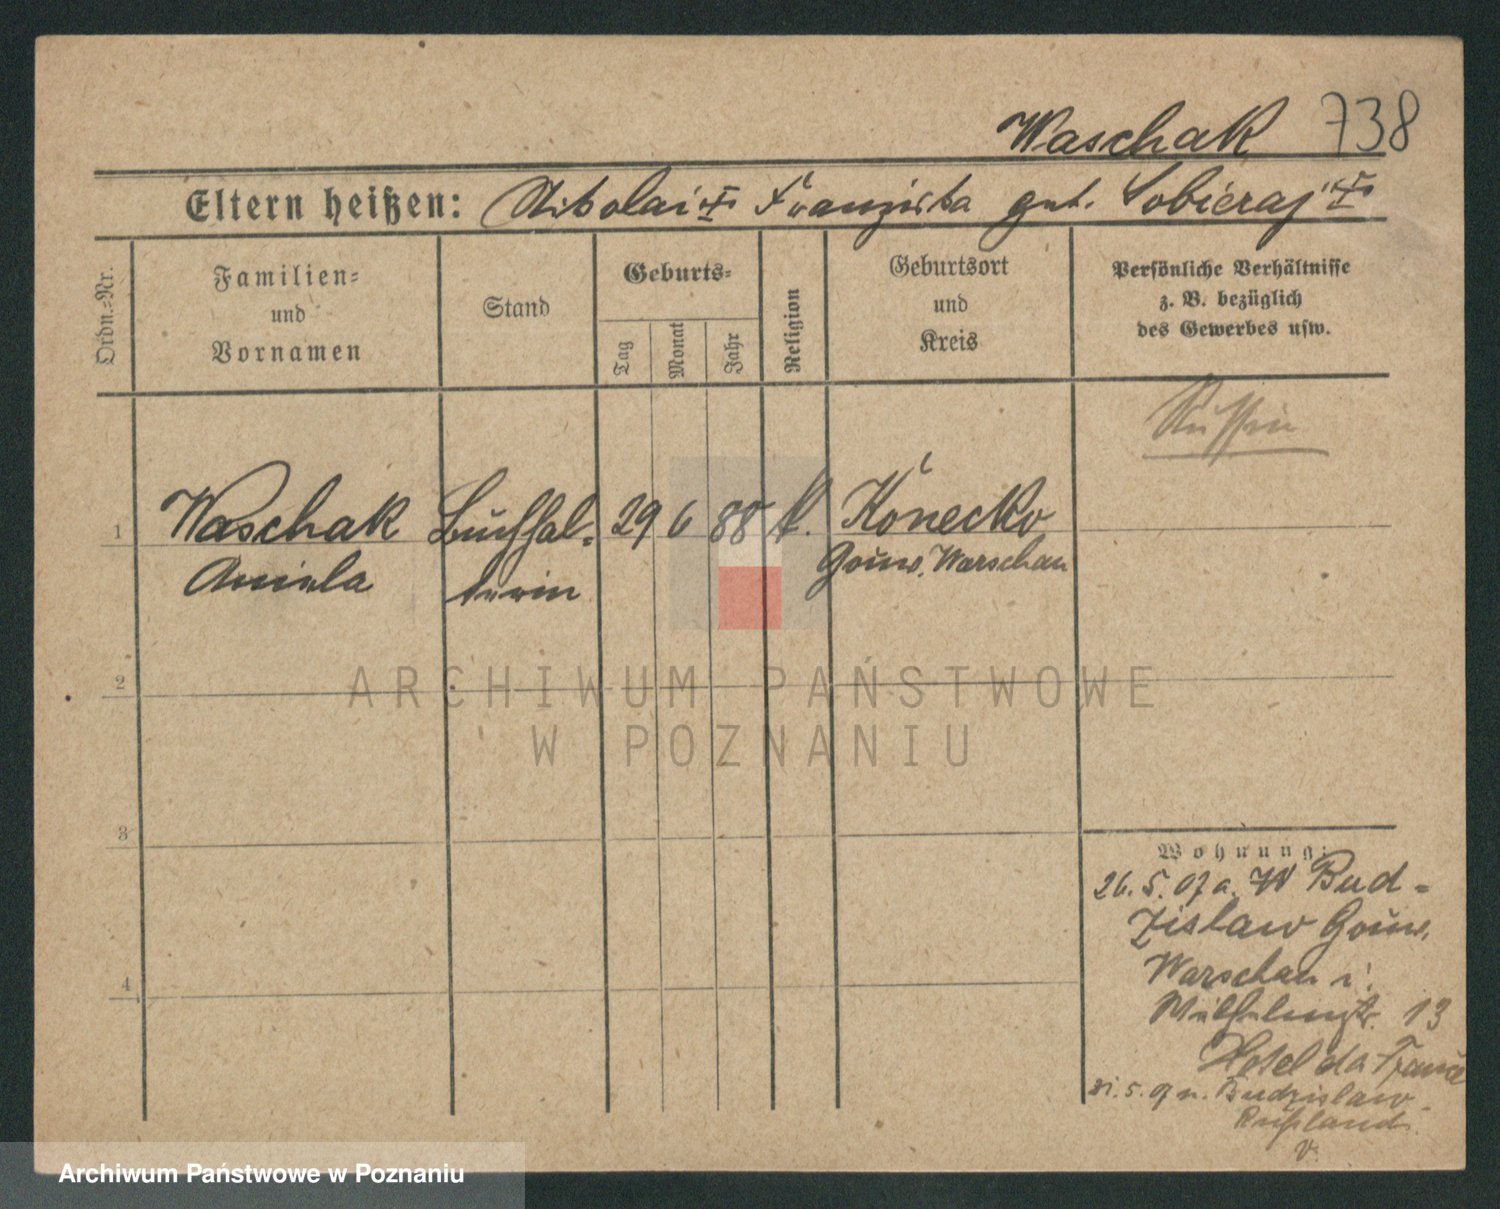 Waschak 738
Eltern heißen: Nikolai Franziska geb. Sobieraj
Ordn.-Nr.
Familien-
und
Vornamen
Stand
Geburts-
Tag
Monat
Jahr
Religion
Geburtsort
und
Kreis
Persönliche Verhältnisse
z. B. bezüglich
des Gewerbes usw.
Russin
1 Waschak Buchhal- 29 6 88 k. Konecko
Aniela terin Gouv. Warschau
ARCHIWUM PAŃSTWOWE
W POZNANIU
2
3
4
Wohnung:
26. 5. 07 a. Bud-
zislaw Gouv.
Warschau i.
Wilhelmstr. 13
Hotel de France
31. 5. 07 n. Budzislaw
Rußland
v.
Archiwum Państwowe w Poznaniu